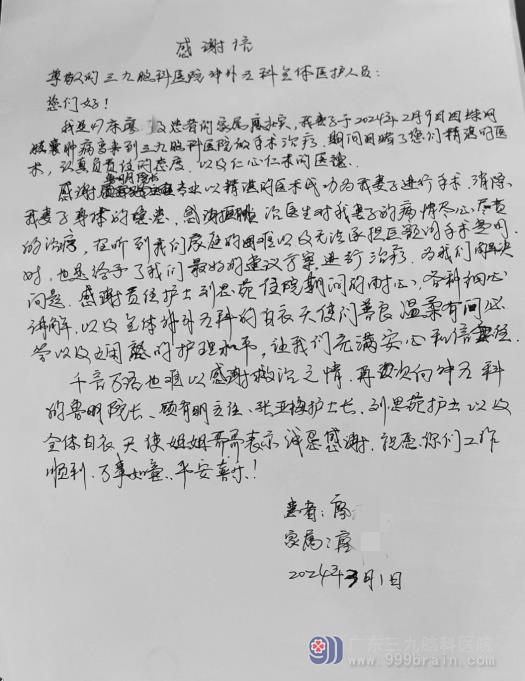 感谢信
尊敬的三九脑科医院神外五科全体医护人员:
您们好!
我是四床廖 患者的家属廖 ,我妻子于2024年2月9日因蛛网
膜囊肿病变来到三九脑科医院做手术治疗,期间目睹了您们精湛的医
术,认真负责任的态度,以及仁心仁术的医德。
感谢鲁明院长 以精湛的医术成功为我妻子进行手术,消除
我妻子身体的隐患。感谢 医生对我妻子的病情尽心尽责
的治疗,在听到我们家庭的困难以及无法承担医药的手术费用
时,也是给予了我们最好的建议方案进行治疗,为我们解决
问题。感谢责任护士刘思苑住院期间的耐心,各科细心
讲解,以及全体神外五科的白衣天使们善良温柔有问必
答以及 的护理水平,让我们充满安心和信任
千言万语也难以感谢救治之情,再次向神外五科
的鲁明院长、顾有明主任、张亚梅护士长、刘思苑护士以及
全体白衣天使姐姐哥哥表示诚恳感谢,祝愿你们工作
顺利,万事如意,平安喜乐!
患者:廖
家属:廖
2024年3月1日
广东三九脑科医院
www.999brain.com